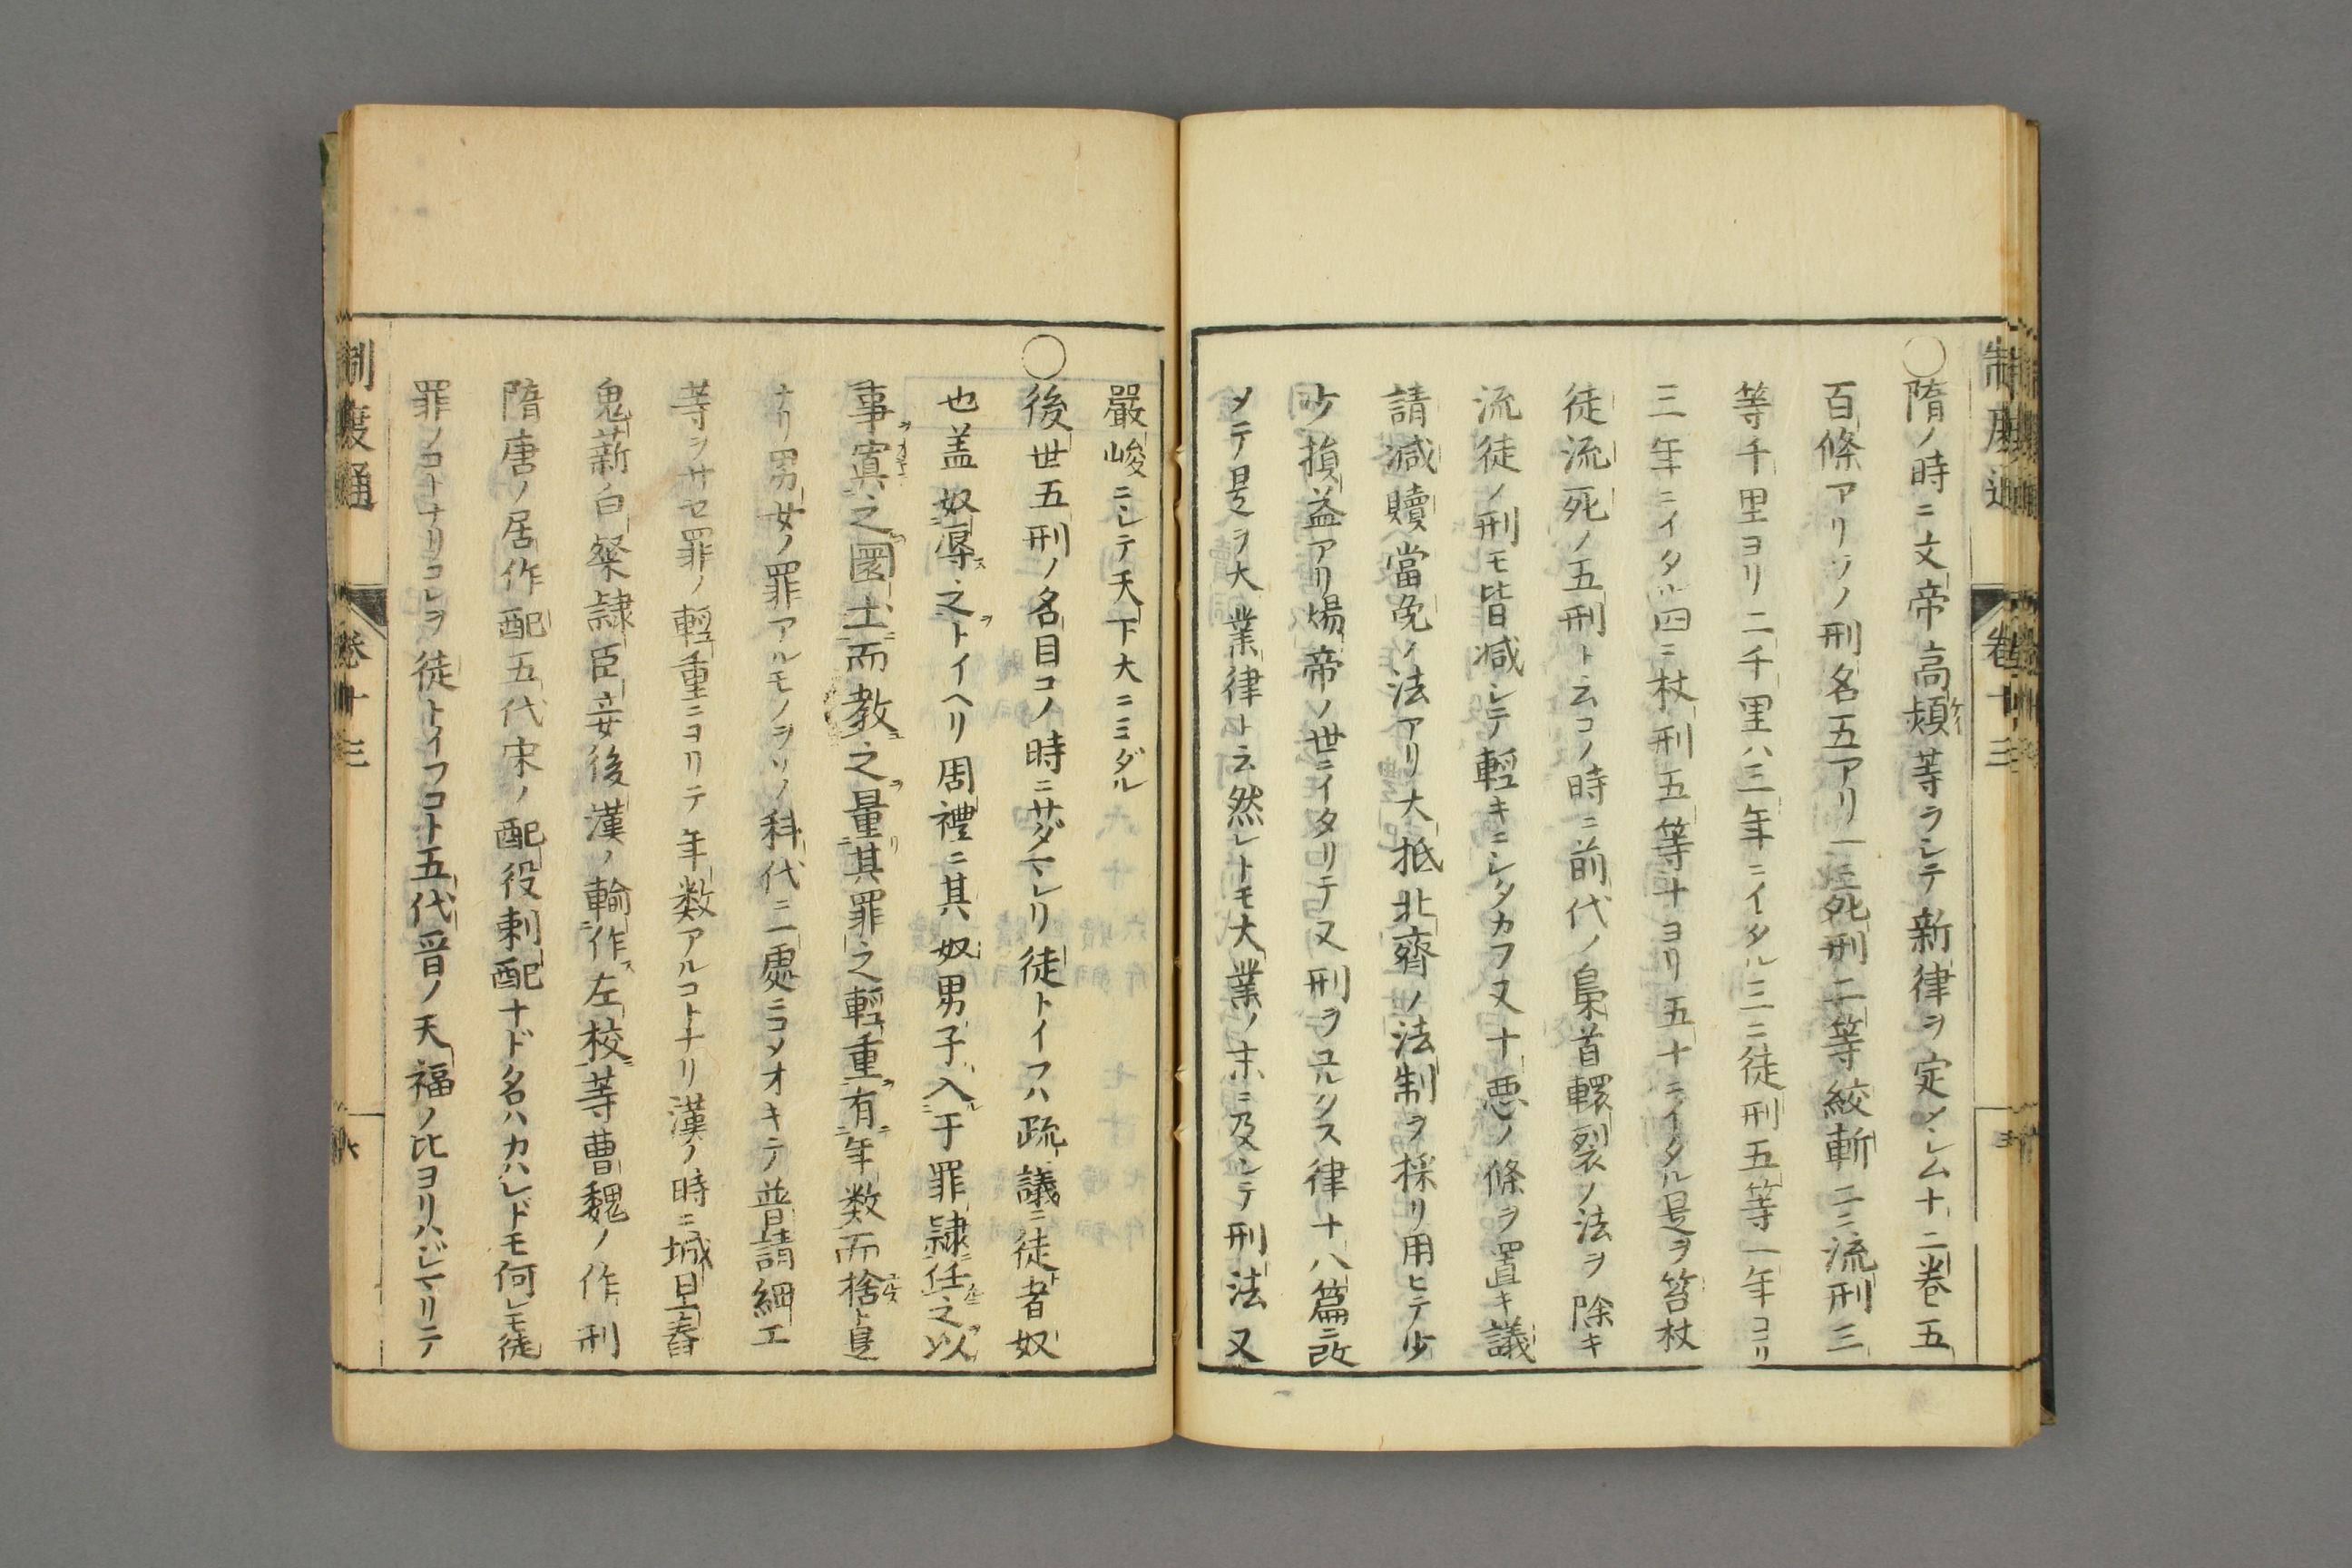 制度通 卷十三
○隋ノ時ニ文帝高熲等ヲシテ新律ヲ定メシム十二巻五
百條アリソノ刑名五アリ一ニ死刑二等絞斬二ニ流刑三
等千里ヨリ二千里ハ三年ニイタル三ニ徒刑五等一年ヨリ
三年ニイタル四ニ杖刑五等十ヨリ五十ニイタル是ヲ笞杖
徒流死ノ五刑ト云コノ時ニ前代ノ梟首轘裂ノ法ヲ除キ
流徒ノ刑モ皆減シテ輕キニシタカフ又十悪ノ條ヲ置キ議
請減贖當免ノ法アリ大抵北齊ノ法制ヲ採リ用ヒテ少
少損益アリ煬帝ノ世ニイタリテ又刑ヲユルクス律十八篇ニ改
メテ是ヲ大業律ト云然レトモ大業ノ末ニ及シテ刑法又
嚴峻ニシテ天下大ニミダル
○後世五刑ノ名目コノ時ニサダマレリ徒トイフハ疏議ニ徒者奴
也盖奴辱之トイヘリ周禮ニ其奴男子入于罪隷任之以
事寘之圜土而教之量其罪之輕重有年数而捨ト是
ナリ男女ノ罪アルモノヲソノ科代ニ一處ニコメオキテ普請細工
等ヲサセ罪ノ輕重ニヨリテ年数アルコトナリ漢ノ時ニ城旦舂
鬼薪白粲隷臣妾後漢ノ輸作左校等曹魏ノ作刑
隋唐ノ居作配五代宋ノ配役刺配ナド名ハカハレドモ何レモ徒
罪ノコトナリコレヲ徒トイフコト五代晉ノ天福ノ比ヨリハジマリテ
制度通 卷十三 六